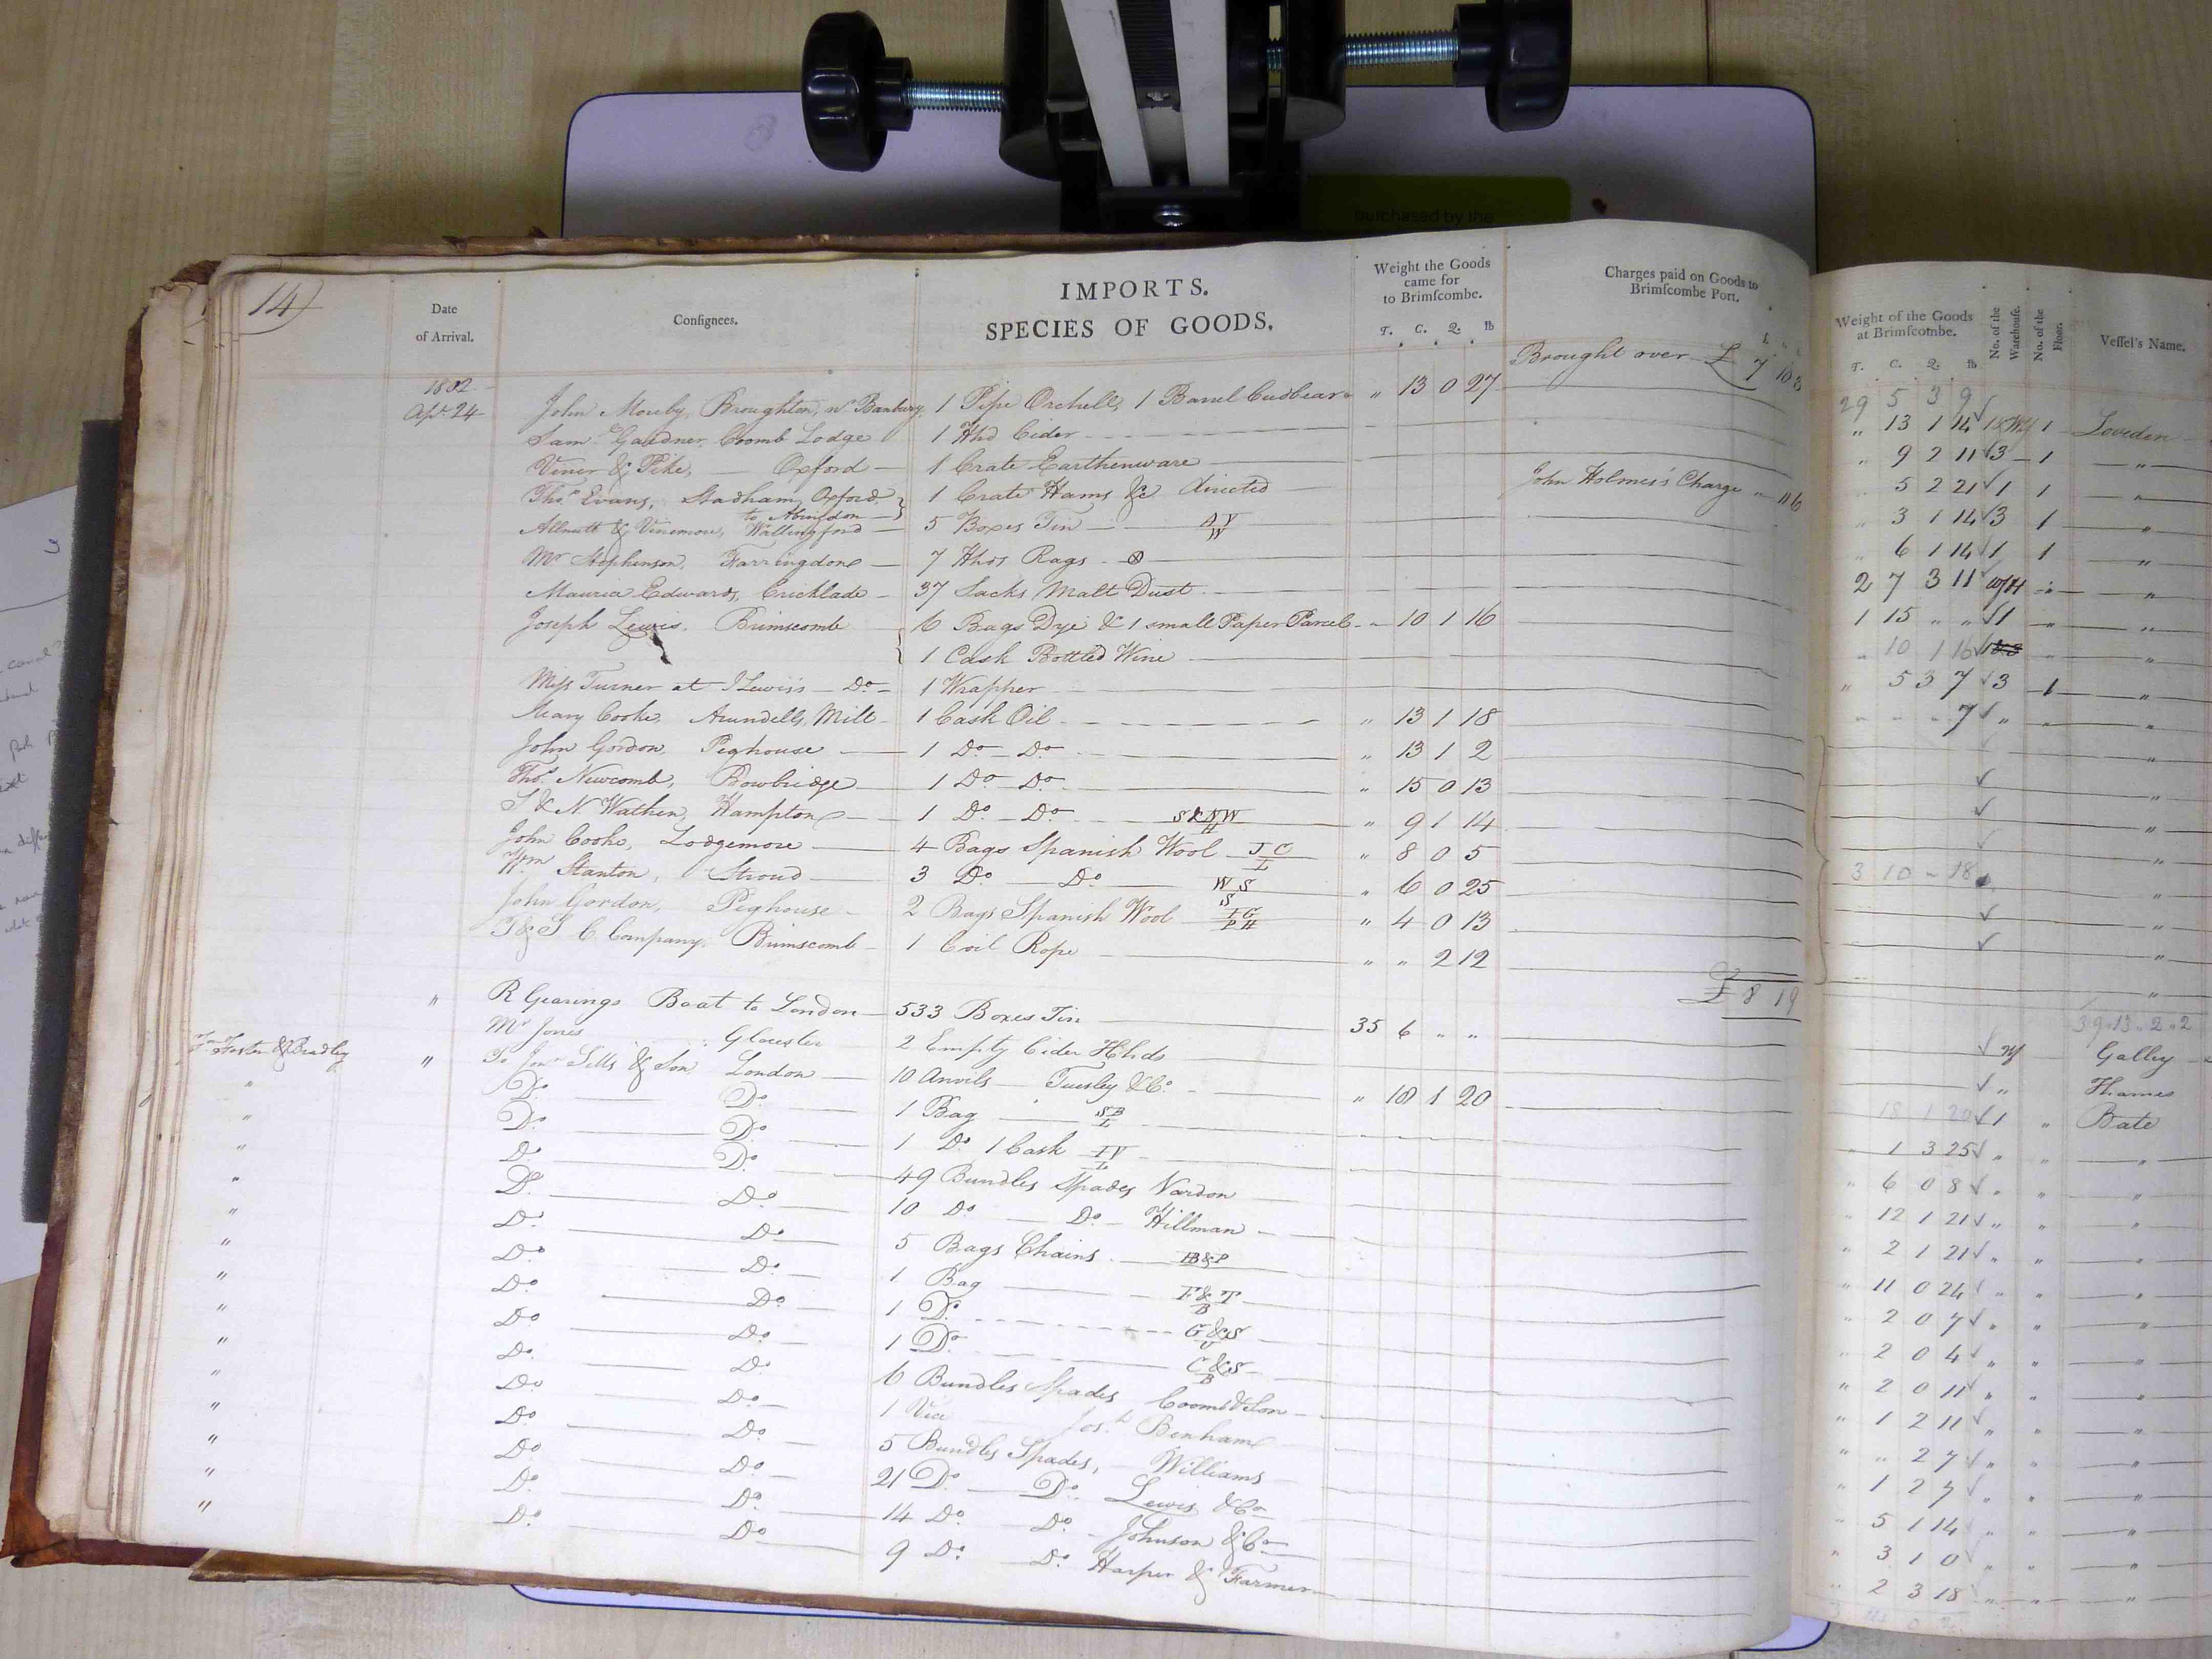 purchased by the
14
Date of Arrival.
Consignees.
IMPORTS.
SPECIES OF GOODS.
Weight the Goods came for to Brimſcombe.
T. C. Q. lb
Charges paid on Goods to Brimſcombe Port.
Weight of the Goods at Brimſcombe.
T. C. Q. lb
No. of the Warehouse.
No. of the Floor.
Veſſel's Name.
Brought over £ 7 10 3
1802 29 5 3 9
Apl. 24 John Mouby, Broughton, nr. Banbury, 1 Pipe Orchell, 1 Barrel Cudbear " 13 0 27 " 13 1 14 1 Loveden
Saml. Gardner Coomb Lodge 1 Hhd Cider " 9 2 11 3 1 "
Viner & Pike, Oxford 1 Crate Earthenware 5 2 21 1 1 "
Thos. Evans, Stadham, Oxford to Abingdon 1 Crate Hams &c directed John Holmes's Charge " 11 6 " 3 1 14 3 1 "
Allnutt & Wallingford 5 Boxes Tin AV W " 6 1 14 1 1 "
Mr Stephenson, Farringdon 7 Hhds Rags 2 7 3 11 "
Edwards, Cricklade 37 Sacks Malt Dust 1 15 " " 1 "
Joseph Lewis. Brimscomb 6 Bags Dye & 1 small Paper Parcel " 10 1 16 " 10 1 16 "
1 Cask Bottled Wine " 5 3 7 3 1 "
Miss Turner at J Lewis's Do 1 Wrapper " " " 7 " " "
Mary Cooke, Arundells Mill 1 Cask Oil " 13 1 18
John Gordon, Peghouse 1 Do Do " 13 1 2 "
Thos. Newcomb, Bowbridge 1 Do Do " 15 0 13 "
S & N Wathen, Hampton 1 Do Do S&NW H " 9 1 14 "
John Cooke, Lodgemore 4 Bags Spanish Wool JC L " 8 0 5 3 10 " 18
Wm Stanton, Stroud 3 Do Do WS S " 6 0 25 "
John Gordon, Peghouse 2 Bags Spanish Wool IG PH " 4 0 13 "
T & S C Company, Brimscomb 1 Coil Rope " " 2 12 "
£ 8 1 9
39 13 2 2
" R Gearings Boat to London 533 Boxes Tin 35 6 " " Galley
Mr Jones Glocester 2 Empty Cider Hhds " Thames
Foster & Bradley " To Jno. Sills & Son London 10 Anvils Tursley & Co. " 18 1 20 18 1 20 1 " Bate
" Do Do 1 Bag SB L " 1 3 25 " " "
" Do Do 1 Do 1 Cask IV L " 6 0 8 " " "
" Do Do 49 Bundles Spades Vardon " 12 1 21 " " "
" Do Do 10 Do Do Hillman " 2 1 21 " " "
" Do Do 5 Bags Chains B&P " 11 0 24 " " "
" Do Do 1 Bag F&T B " 2 0 7 " " "
" Do Do 1 Do G&S " 2 0 4 " " "
" Do Do 1 Do C&S B " 2 0 11 " " "
" Do Do 6 Bundles Spades Cooms & Son " 1 2 11 " " "
" Do Do 1 Vice Josh. Benham " " 2 7 " " "
" Do Do 5 Bundles Spades, Williams " 1 2 7 " " "
" Do Do 21 Do Do Lewis &Co " 5 1 14 " " "
" Do Do 14 Do Do Johnson & Co " 3 1 0 " " "
" Do Do 9 Do Do Harper & Farmer " 2 3 18 " " "